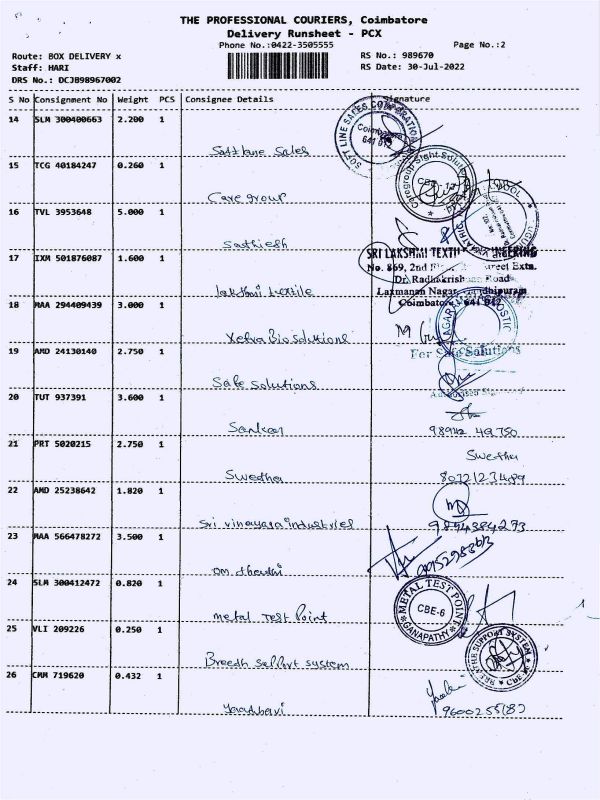 THE PROFESSIONAL COURIERS, Coimbatore
Delivery Runsheet - PCX
Phone No.:0422-3505555
Page No.:2
Route: BOX DELIVERY x
Staff: HARI
DRS No.: DCJB98967002
RS No.: 989670
RS Date: 30-Jul-2022
S No Consignment No Weight PCS Consignee Details Signature
14 SLM 300400663 2.200 1
Softline Sales
SOFT LINE SALES CORPORATION
Coimbatore
641 012
15 TCG 40184247 0.260 1
Care group
Caregroup Sight Solution
CBE-12
16 TVL 3953648 5.000 1
Sathiesh
17 IXM 501876087 1.600 1
SRI LAKSHMI TEXTILE ENGINEERING
No. 869, 2nd Street Extn.
Dr. Radhakrishnan Road
Laxmanan Nagar, Gandhipuram
Coimbatore - 641 012
lakshmi textile
18 MAA 294409439 3.000 1
Xelva Bio Solutions
19 AMD 24130140 2.750 1
For Safe Solutions
Safe Solutions
Authorised Signatory
20 TUT 937391 3.600 1
21 PRT 5020215 2.750 1
Swetha
Swetha
8072123489
22 AMD 25238642 1.820 1
Sri vinayaga industries
9894384293
23 MAA 566478272 3.500 1
24 SLM 300412472 0.820 1
metal Test Point
METAL TEST POINT
CBE-6
GANAPATHY
25 VLI 209226 0.250 1
Breath Sallart system
BREATHE SUPPORT SYSTEM
CBE
26 CMM 719620 0.432 1